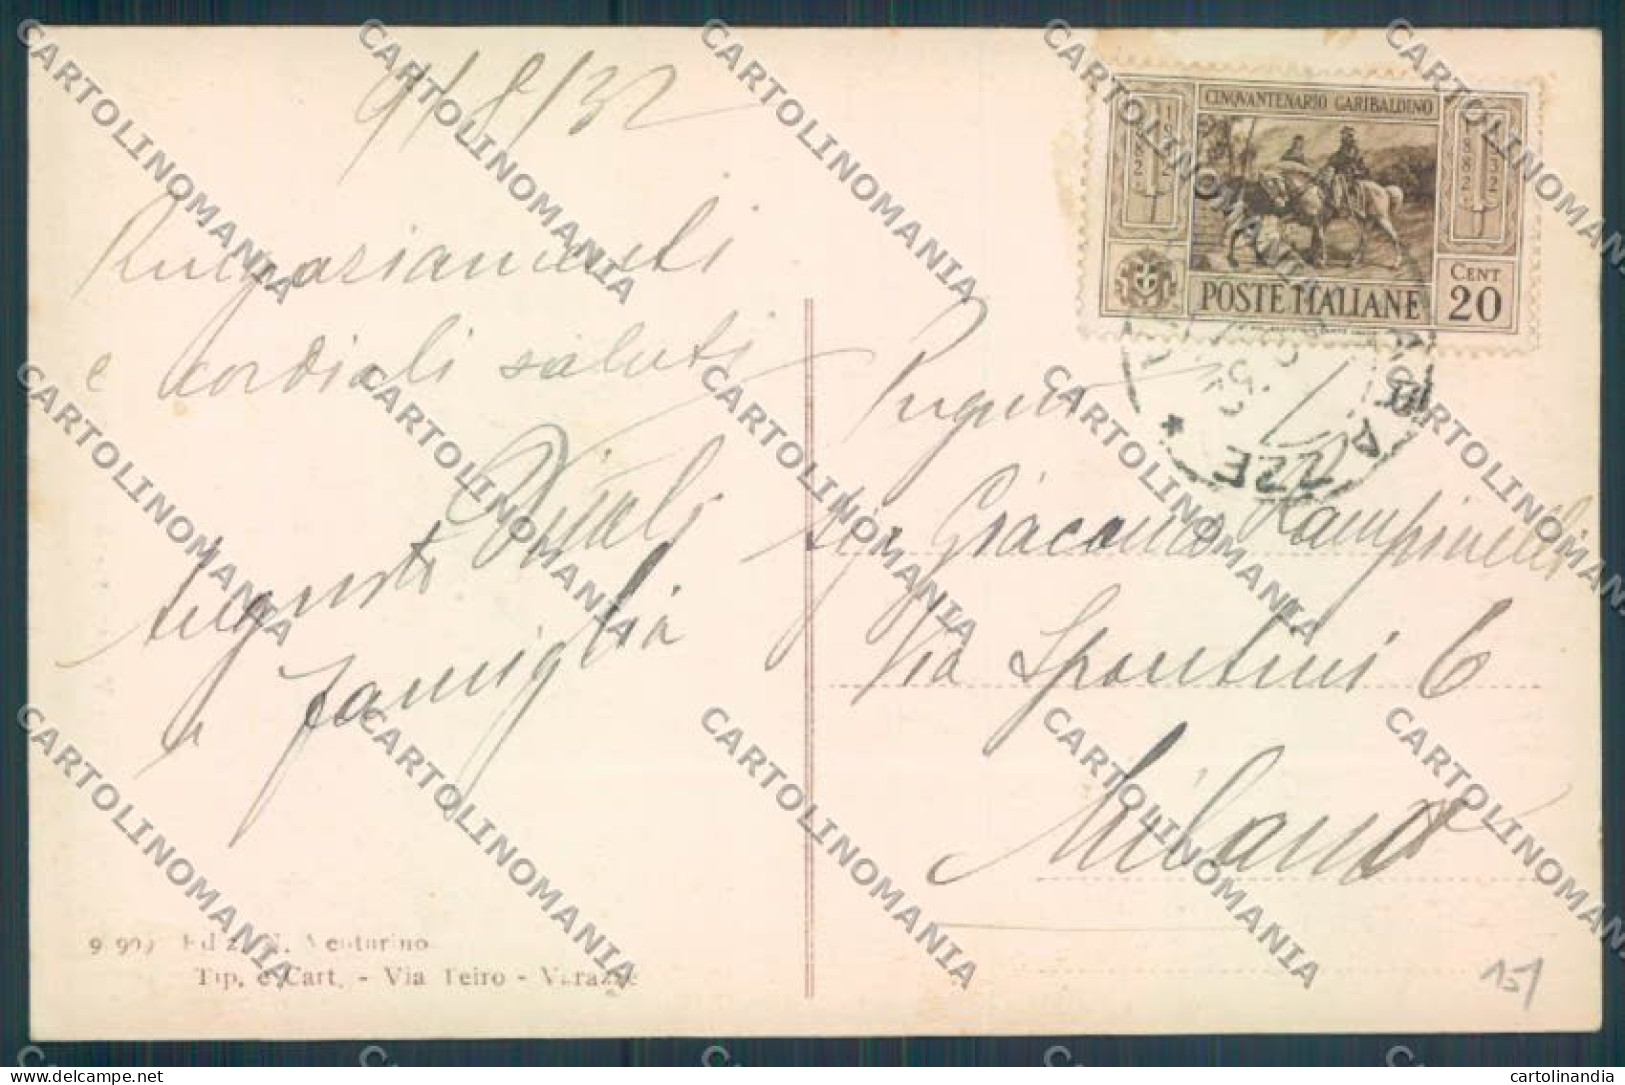 9/8/32
Ringraziamenti
e cordiali saluti
Augusto Vitali
e famiglia
CINQVANTENARIO GARIBALDINO
1882
1932
1882
1932
CENT
20
POSTE ITALIANE
Sig Giacomo Rampinelli
Via Spontini 6
Milano
Ediz. N. Venturino
Tip. e Cart. - Via Teiro - Varazze
151
CARTOLINOMANIA
delcampe.net
cartolinandia